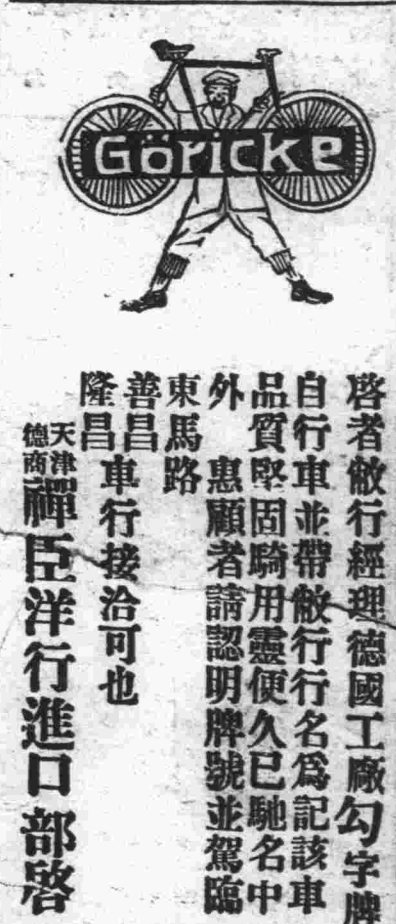 Göricke
啓者敝行經理德國工廠勾字牌
自行車並帶敝行行名爲記該車
品質堅固騎用靈便久已馳名中
外　惠顧者請認明牌號並駕臨
東馬路
善昌
隆昌
車行接洽可也
天津
德商
禪臣洋行進口部啓